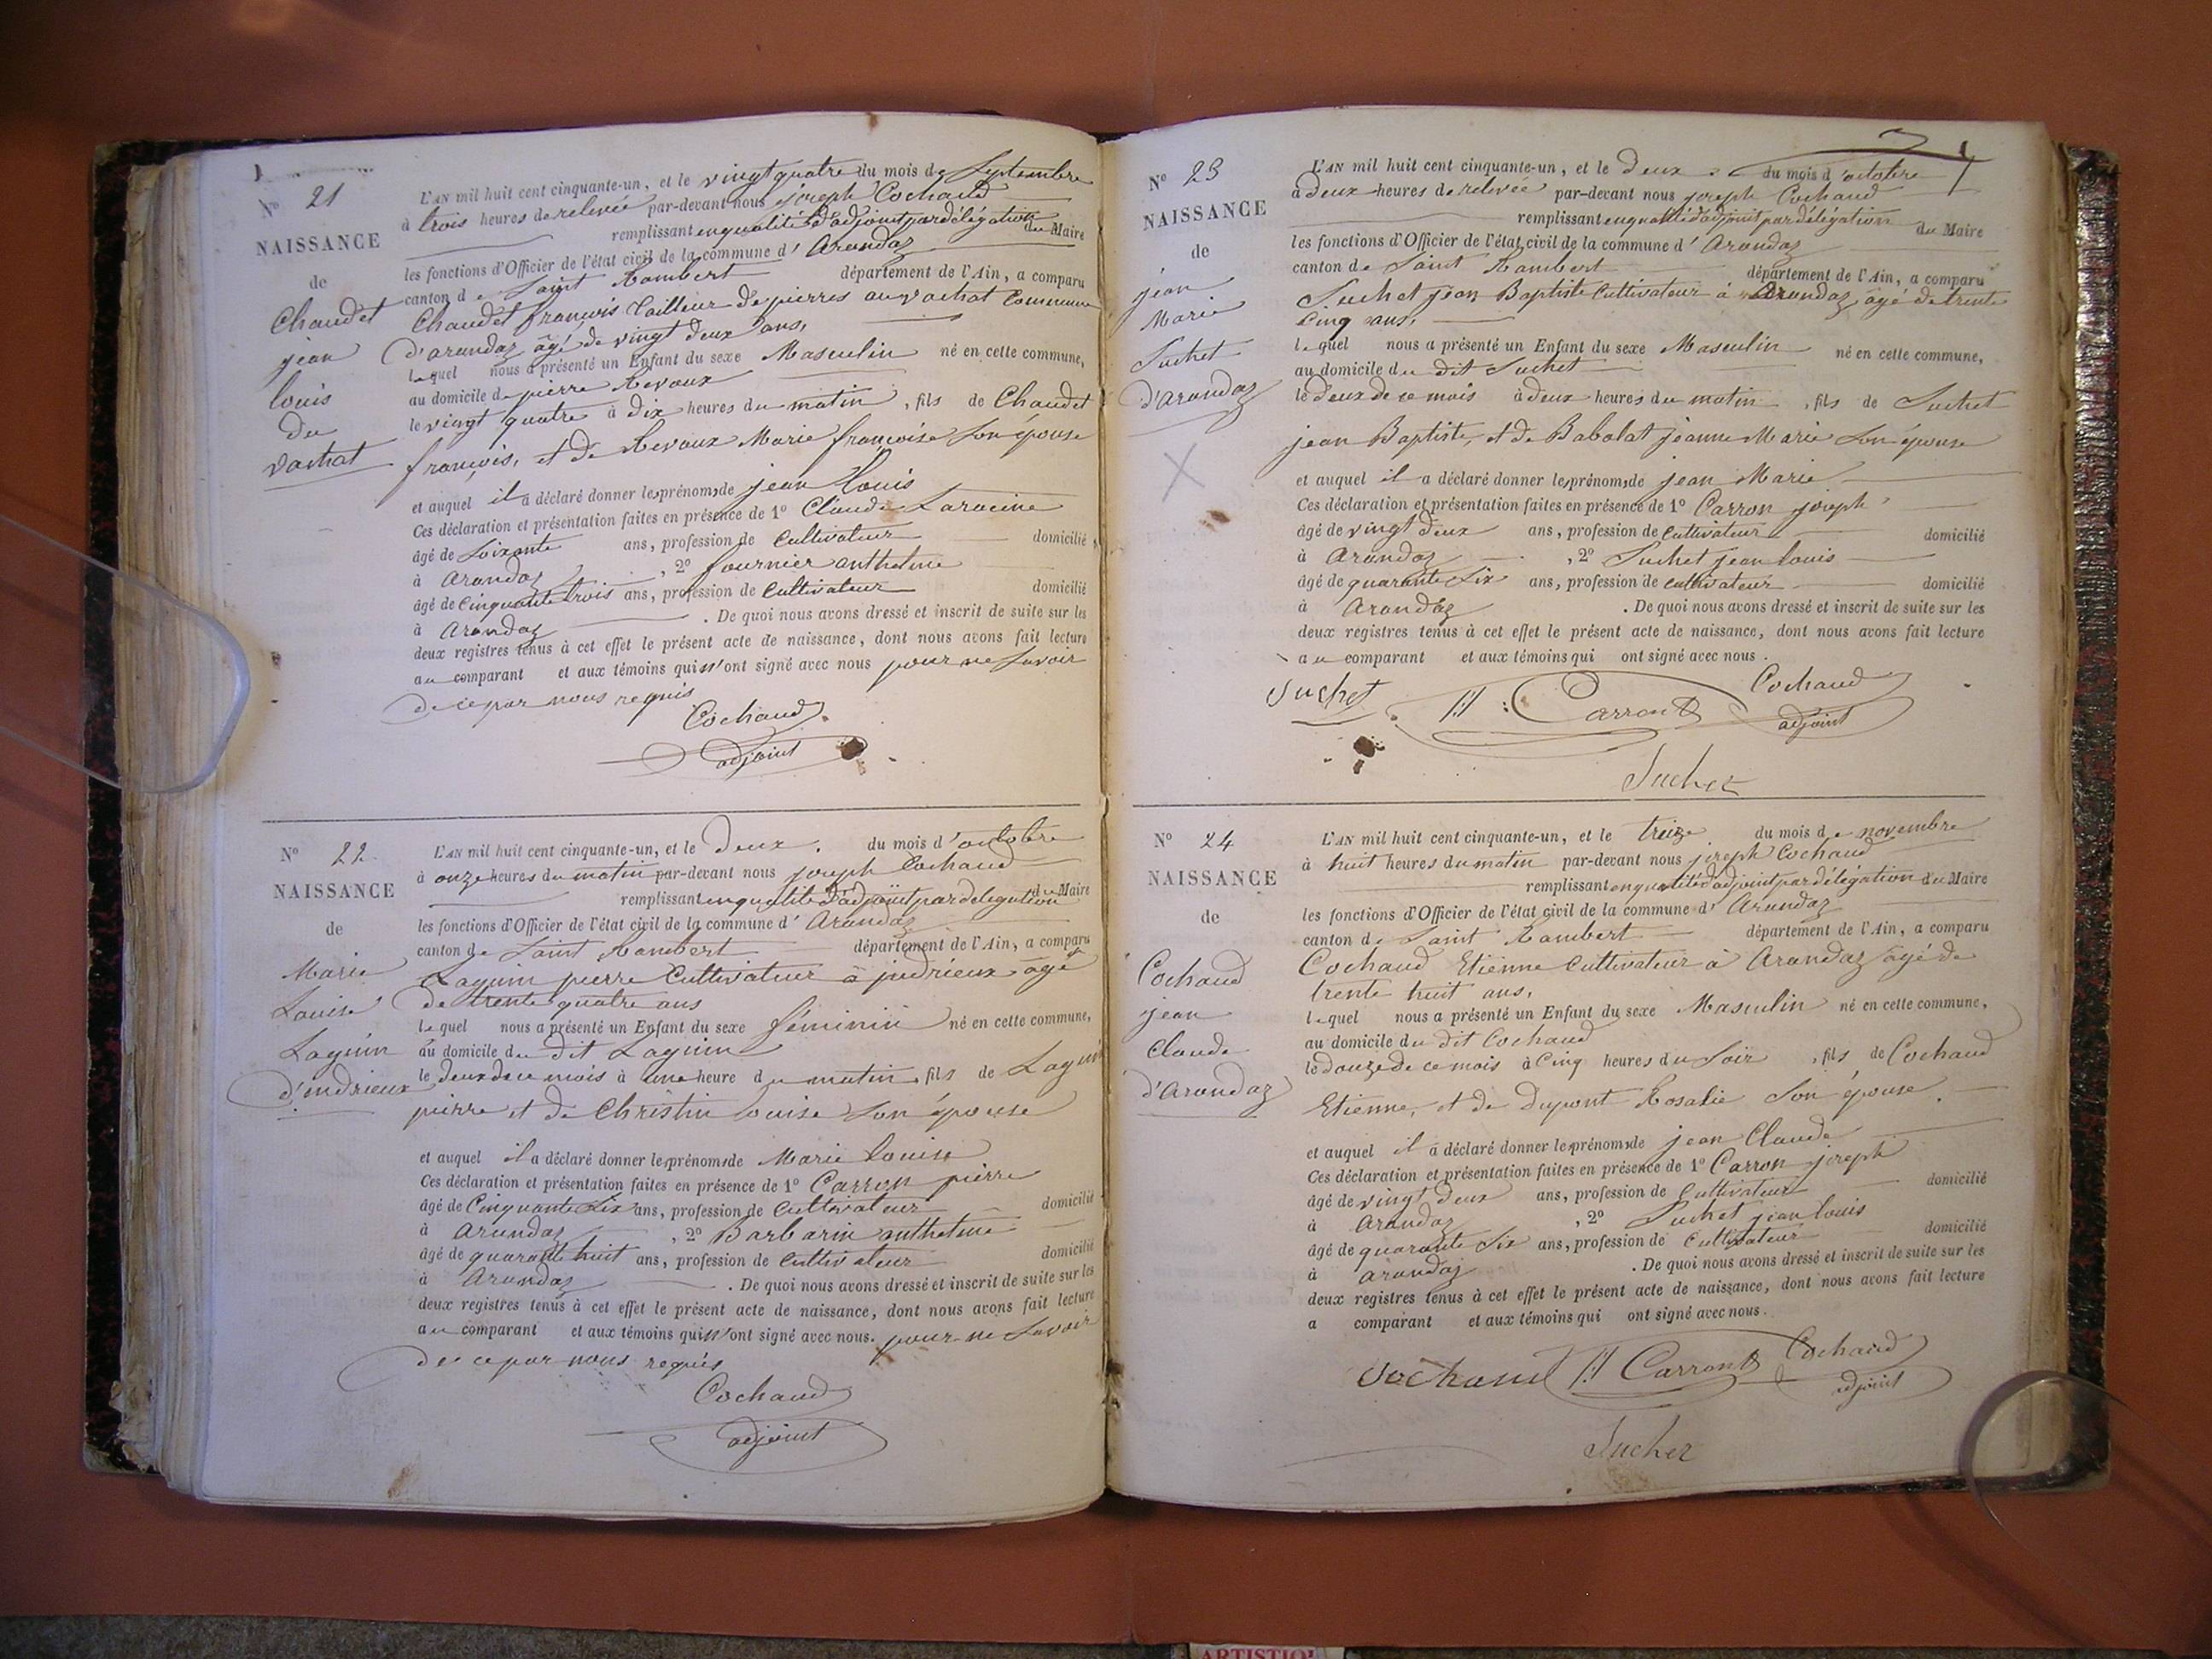 N° 21
NAISSANCE
de
Chaudet
jean
louis
du
vachat
L'AN mil huit cent cinquante-un, et le vingt quatre du mois de Septembre
à trois heures de relevée par-devant nous joseph Cochaud
remplissant en qualité d'adjoint par délégation du Maire
les fonctions d'Officier de l'état civil de la commune d'Arandaz
canton de Saint Rambert département de l'Ain, a comparu
Chaudet françois tailleur de pierres au vachat Commune
d'arandaz âgé de vingt deux ans,
lequel nous a présenté un Enfant du sexe Masculin né en cette commune,
au domicile de pierre Revaux
le vingt quatre à dix heures du matin, fils de Chaudet
françois, et de Revaux Marie françoise son épouse
et auquel il a déclaré donner les prénoms de jean Louis
Ces déclaration et présentation faites en présence de 1° Claude Laracine
âgé de soixante ans, profession de Cultivateur domicilié
à Arandaz, 2° fournier anthelme
âgé de cinquante trois ans, profession de Cultivateur domicilié
à Arandaz. De quoi nous avons dressé et inscrit de suite sur les
deux registres tenus à cet effet le présent acte de naissance, dont nous avons fait lecture
au comparant et aux témoins qui n'ont signé avec nous pour ne savoir
de ce par nous requis
Cochaud
adjoint
N° 22
NAISSANCE
de
Marie
Louise
Laguin
d'indrieux
L'AN mil huit cent cinquante-un, et le Deux. du mois d'octobre
à onze heures du matin par-devant nous joseph Cochaud
remplissant en qualité d'adjoint par delegation du Maire
les fonctions d'Officier de l'état civil de la commune d'Arandaz
canton de Saint Rambert département de l'Ain, a comparu
Laguin pierre Cultivateur à indrieux âgé
de trente quatre ans
lequel nous a présenté un Enfant du sexe féminin né en cette commune,
au domicile du dit Laguin
le deux de ce mois à une heure du matin, fils de Laguin
pierre et de Christin Louise son épouse
et auquel il a déclaré donner les prénoms de Marie Louise
Ces déclaration et présentation faites en présence de 1° Carron pierre
âgé de Cinquante six ans, profession de Cultivateur domicilié
à Arandaz, 2° Barbarin anthelme
âgé de quarante huit ans, profession de Cultivateur domicilié
à Arandaz. De quoi nous avons dressé et inscrit de suite sur les
deux registres tenus à cet effet le présent acte de naissance, dont nous avons fait lecture
au comparant et aux témoins qui n'ont signé avec nous. pour ne savoir
de ce par nous requis
Cochaud
adjoint
N° 23
NAISSANCE
de
jean
Marie
Suchet
d'Arandaz
L'AN mil huit cent cinquante-un, et le Deux du mois d'octobre
à Deux heures de relevée par-devant nous joseph Cochaud
remplissant en qualité d'adjoint par délégation du Maire
les fonctions d'Officier de l'état civil de la commune d'Arandaz
canton de Saint Rambert département de l'Ain, a comparu
Suchet jean Baptiste Cultivateur à Arandaz âgé de trente
Cinq ans,
lequel nous a présenté un Enfant du sexe Masculin né en cette commune,
au domicile du dit Suchet
le Deux de ce mois à deux heures du matin, fils de Suchet
jean Baptiste, et de Babolat jeanne Marie son épouse
et auquel il a déclaré donner les prénoms de jean Marie
Ces déclaration et présentation faites en présence de 1° Carron joseph
âgé de vingt deux ans, profession de Cultivateur domicilié
à Arandaz, 2° Suchet jean louis
âgé de quarante six ans, profession de cultivateur domicilié
à Arandaz. De quoi nous avons dressé et inscrit de suite sur les
deux registres tenus à cet effet le présent acte de naissance, dont nous avons fait lecture
au comparant et aux témoins qui ont signé avec nous.
Suchet Carron Cochaud
adjoint
Suchet
N° 24
NAISSANCE
de
Cochaud
jean
Claude
d'Arandaz
L'AN mil huit cent cinquante-un, et le treize du mois de novembre
à huit heures du matin par-devant nous joseph Cochaud
remplissant en qualité d'adjoint par délégation du Maire
les fonctions d'Officier de l'état civil de la commune d'Arandaz
canton de Saint Rambert département de l'Ain, a comparu
Cochaud Etienne Cultivateur à Arandaz âgé de
trente huit ans,
lequel nous a présenté un Enfant du sexe Masculin né en cette commune,
au domicile du dit Cochaud
le douze de ce mois à Cinq heures du Soir, fils de Cochaud
Etienne, et de Dupont Rosalie Son épouse.
et auquel il a déclaré donner les prénoms de jean Claude
Ces déclaration et présentation faites en présence de 1° Carron joseph
âgé de vingt deux ans, profession de Cultivateur domicilié
à Arandaz, 2° Suchet jean louis
âgé de quarante six ans, profession de Cultivateur domicilié
à arandaz. De quoi nous avons dressé et inscrit de suite sur les
deux registres tenus à cet effet le présent acte de naissance, dont nous avons fait lecture
a comparant et aux témoins qui ont signé avec nous.
Cochaud Carron Cochaud
adjoint
Suchet